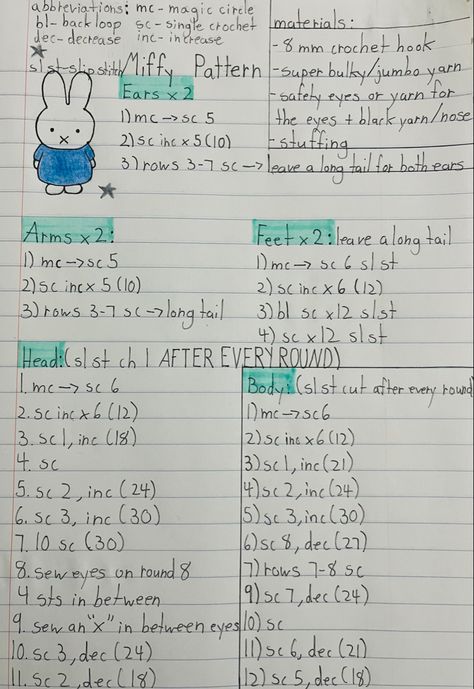 abbreviations: mc - magic circle
bl - back loop sc - single crochet
dec - decrease inc - increase
slst - slip stitch
materials:
- 8 mm crochet hook
- super bulky/jumbo yarn
- safety eyes or yarn for
the eyes + black yarn/nose
- stuffing
Miffy Pattern
Ears x 2
1) mc → sc 5
2) sc inc x 5 (10)
3) rows 3-7 sc → leave a long tail for both ears
Arms x 2:
1) mc → sc 5
2) sc inc x 5 (10)
3) rows 3-7 sc → long tail
Feet x 2: leave a long tail
1) mc → sc 6 slst
2) sc inc x 6 (12)
3) bl sc x12 slst
4) sc x12 slst
Head: (slst ch 1 AFTER EVERY ROUND)
1. mc → sc 6
2. sc inc x 6 (12)
3. sc 1, inc (18)
4. sc
5. sc 2, inc (24)
6. sc 3, inc (30)
7. 10 sc (30)
8. sew eyes on round 8
4 sts in between
9. sew an "x" in between eyes
10. sc 3, dec (24)
11. sc 2, dec (18)
Body: (slst cut after every round)
1) mc → sc 6
2) sc inc x 6 (12)
3) sc 1, inc (21)
4) sc 2, inc (24)
5) sc 3, inc (30)
6) sc 8, dec (27)
7) rows 7-8 sc
9) sc 7, dec (24)
10) sc
11) sc 6, dec (21)
12) sc 5, dec (18)